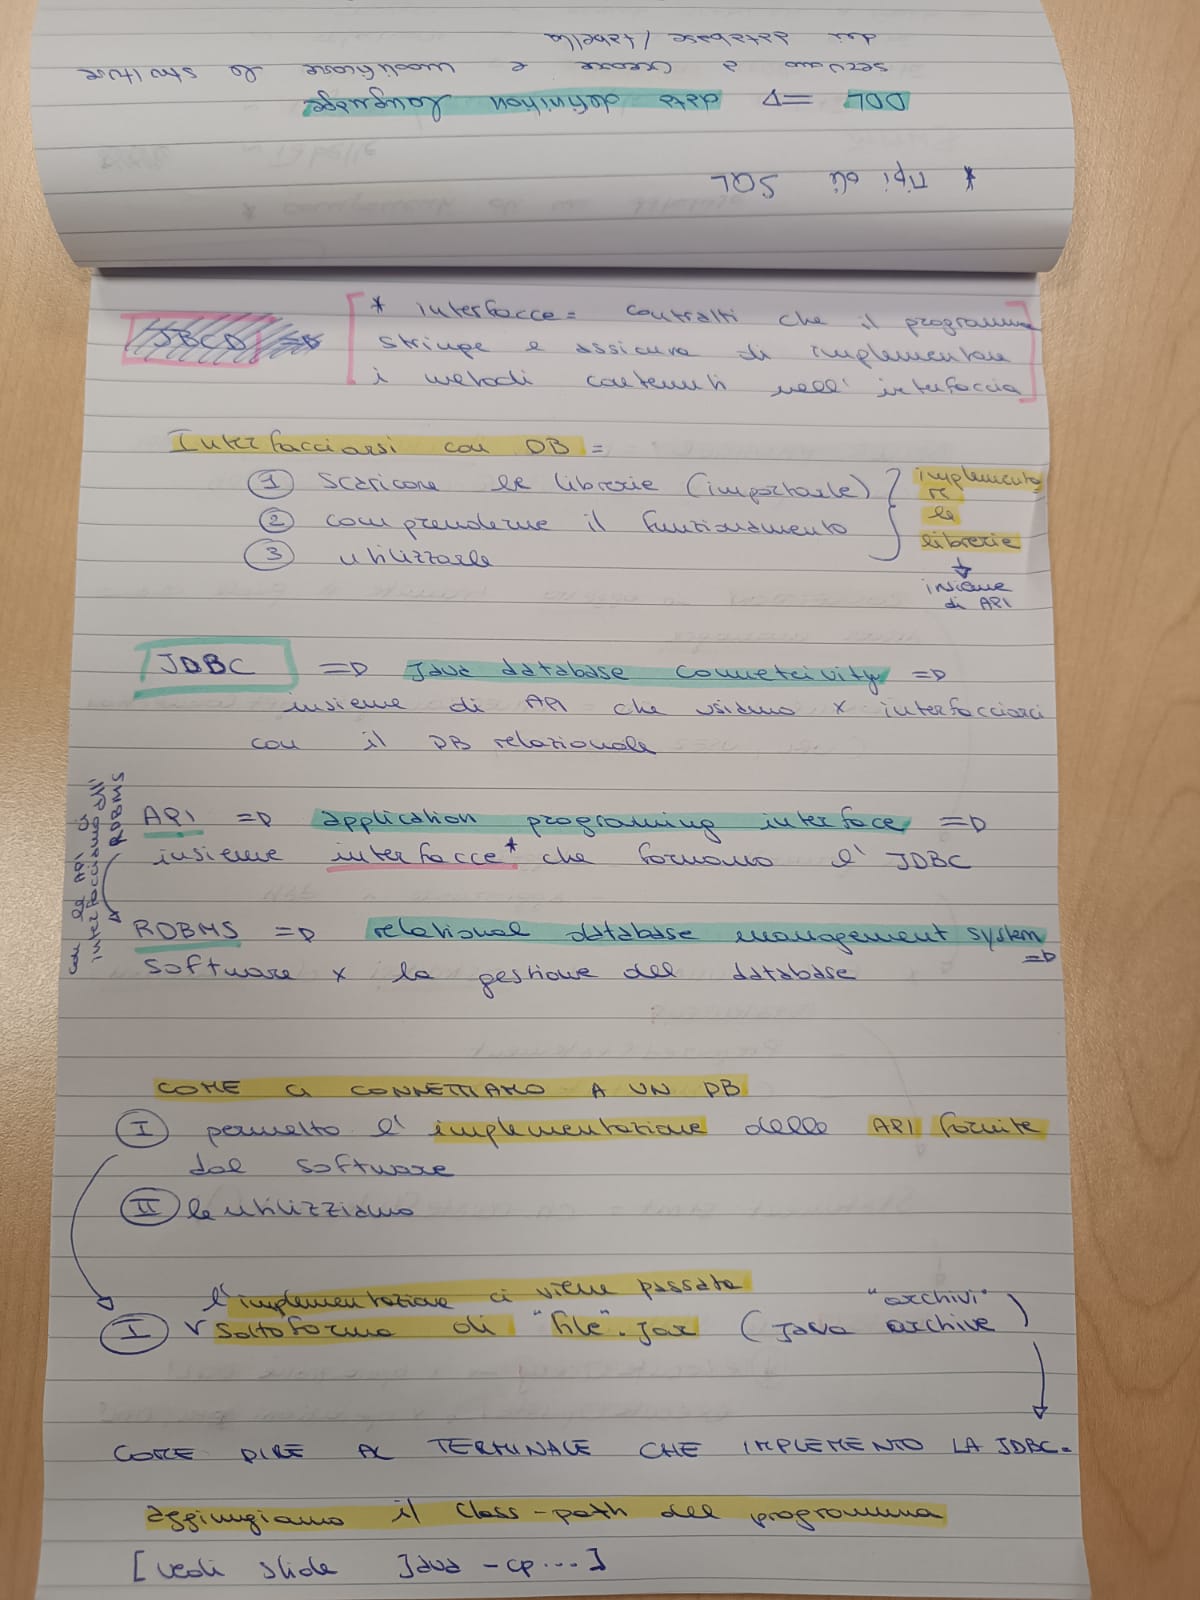 * Tipi di SQL
DDL => data definition language
servono a creare e modificare le strutture
dei database / tabelle
JBCD =>
* interfacce = contratti che il programma
stringe e assicura di implementare
i metodi contenuti nell' interfaccia
Interfacciarsi con DB =
① Scaricare le librerie (importarle)
② comprenderne il funzionamento
③ utilizzarle
implementa
re
le
librerie
insieme
di API
JDBC => Java database connetcivity =>
insieme di API che usiamo x interfacciarci
con il DB relazionale
API => application programing interface =>
insieme interfacce* che fornamo l' JDBC
con le API ci
interfacciamo all'
RDBMS
RDBMS => relational database management system
=>
software x la gestione del database
COME CI CONNETTIAMO A UN DB
I permetto l' implementazione delle API fornite
dal software
II le utilizziamo
l'implementazione ci viene passata "archivi"
I sottoforma di "file".jar (Java archive)
COME DIRE AL TERMINALE CHE IMPLEMENTO LA JDBC.
aggiungiamo il class-path del programma
[vedi slide Java -cp...]